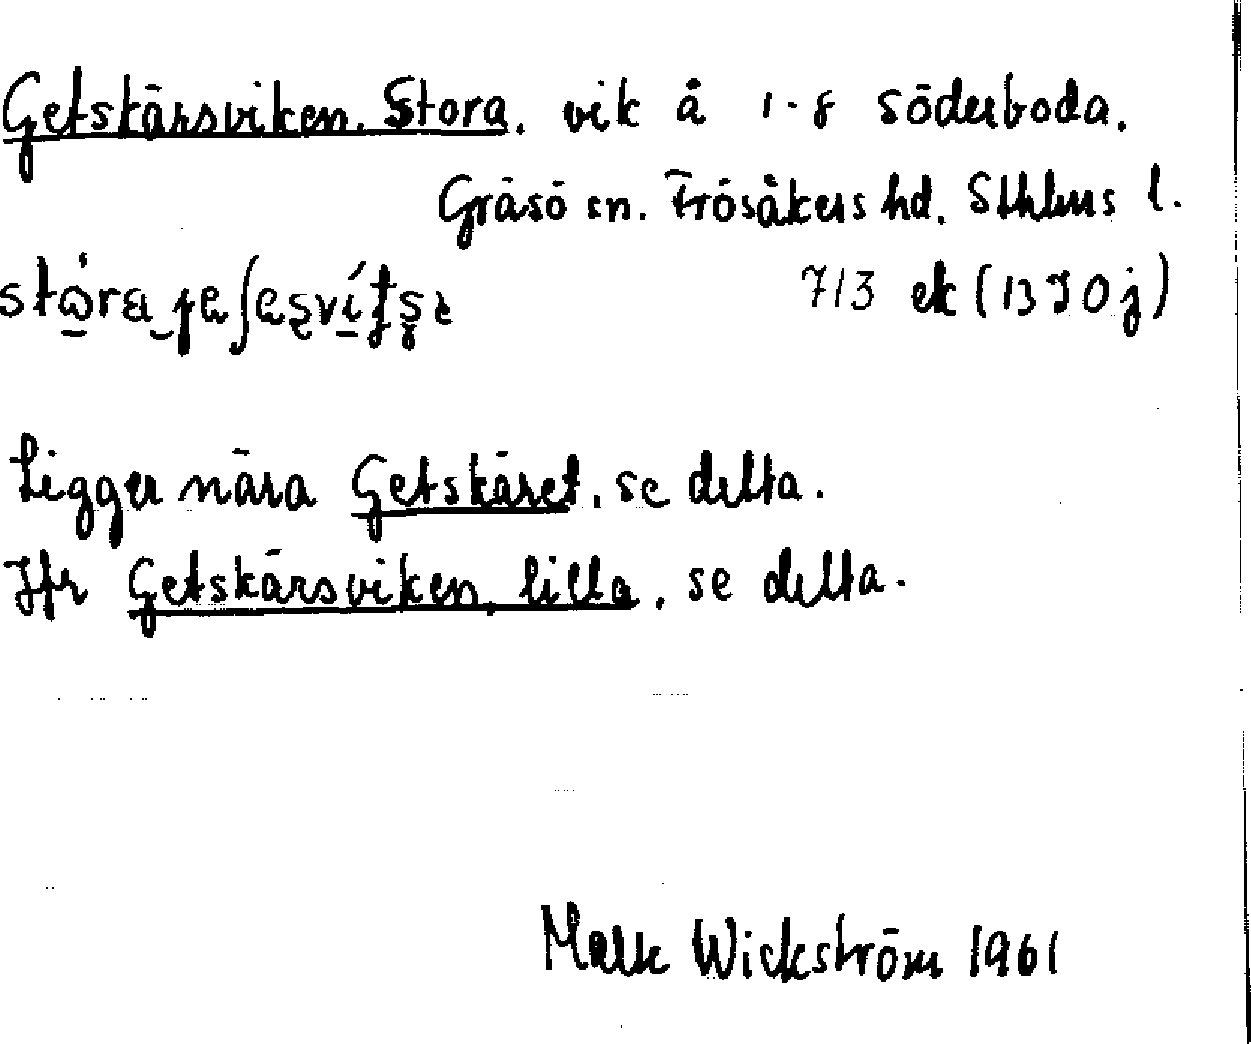 Getskärsviken, Stora, vik å 1-8 Söderboda,
Gräsö sn. Frösåkers hd. Sthlms l.
713 ek (13I0j)
Ligger nära Getskäret, se detta.
Jfr Getskärsviken, lilla, se detta.
Wickström 1961